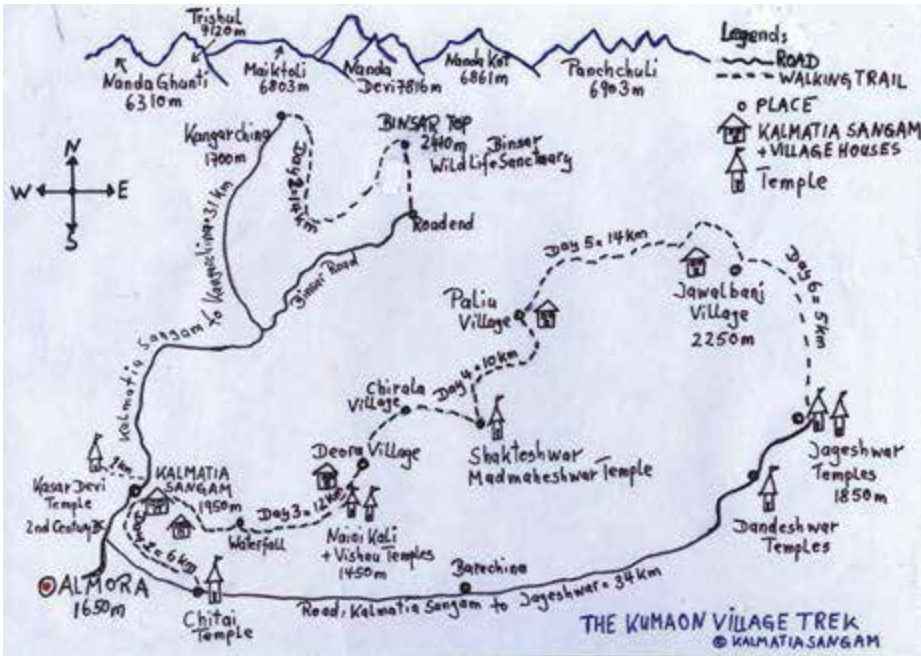 Trishul
9120m
Nanda Ghunti
6310m
Maiktoli
6803m
Nanda
Devi 7816m
Nanda Kot
6861m
Panchchuli
6903m
Legends
ROAD
WALKING TRAIL
PLACE
KALMATIA SANGAM
+ VILLAGE HOUSES
Temple
N
W
E
S
Kangarching
1700m
BINSAR TOP
Binsar
Wild Life Sanctuary
Roadend
Binsar Road
Kalmatia Sangam to
Day 5 = 14 km
Day 6 = 5 km
Jawalbanj
Village
2250m
Paliu
Village
Day 4 = 10km
Chirala
Village
Shakteshwar
Madmaheshwar Temple
Jageshwar
Temples
1850m
Dandeshwar
Temples
Deora Village
Day 3 = 12 km
+ Vishnu Temples
1450m
Waterfall
KALMATIA
SANGAM
1950m
1km
Kasar Devi
Temple
2nd Century
6km
ALMORA
1650m
Chitai
Temple
Barechina
Road: Kalmatia Sangam to Jageshwar = 34 km
THE KUMAON VILLAGE TREK
© KALMATIA SANGAM